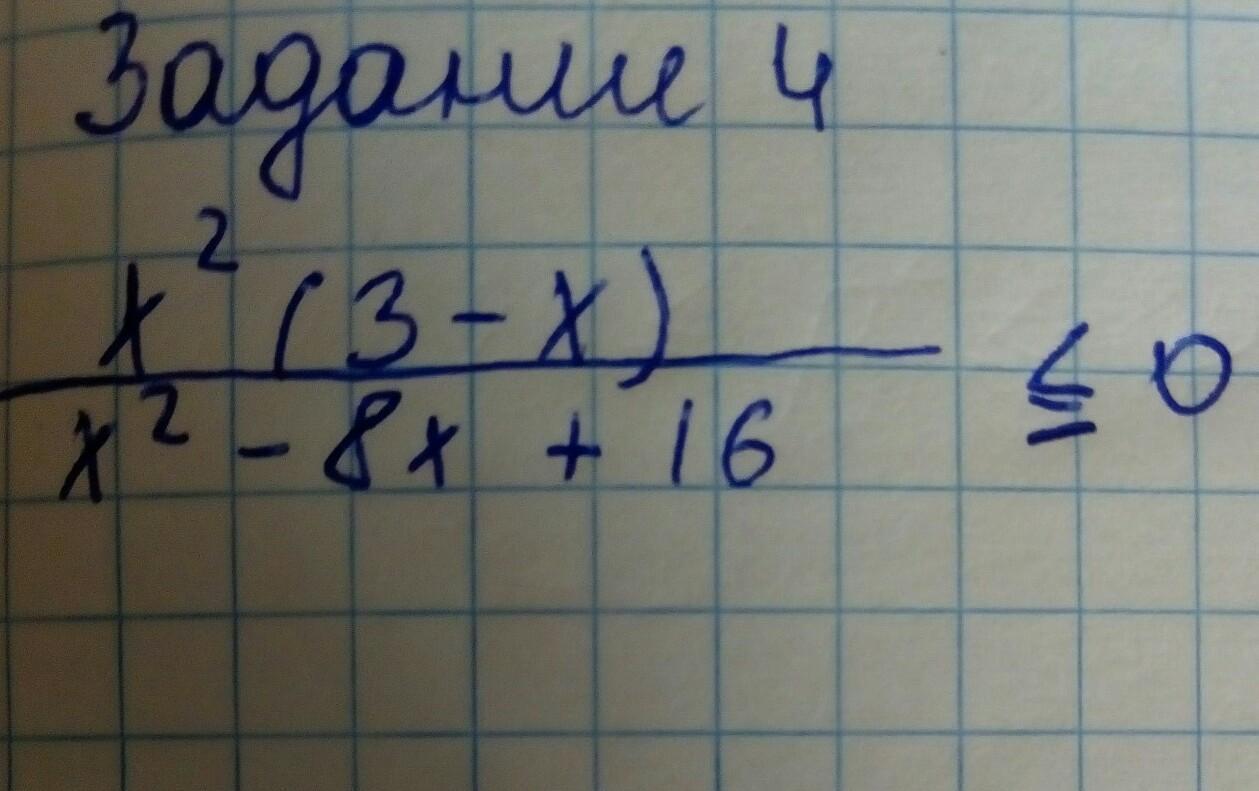 Задание 4
x² (3 - x)
x² - 8x + 16 ≤ 0